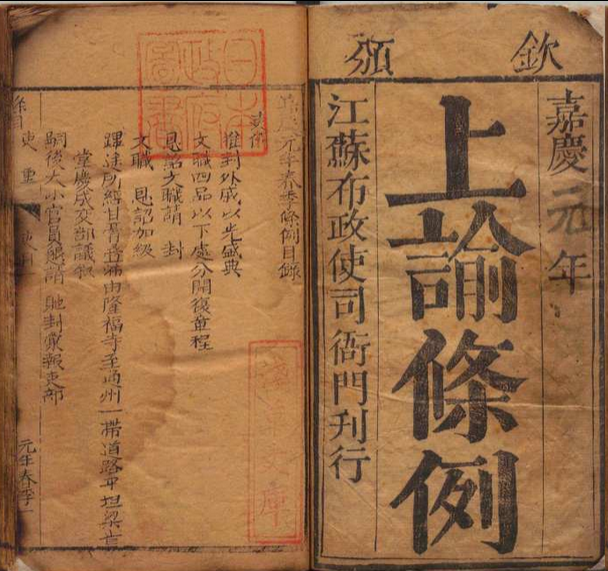 欽頒
嘉慶元年
上諭條例
江蘇布政使司衙門刊行
日本政府圖書
淺草文庫
慶元年春季條例目錄
推封外戚以光盛典
文職四品以下處分開復章程
恩詔文職請 封
文職 恩詔加級
蹕途所經 由隆福寺至通州一帶道路平坦
成交部議敘
嗣後大小官員 請 貤封彙報吏部
元年春季